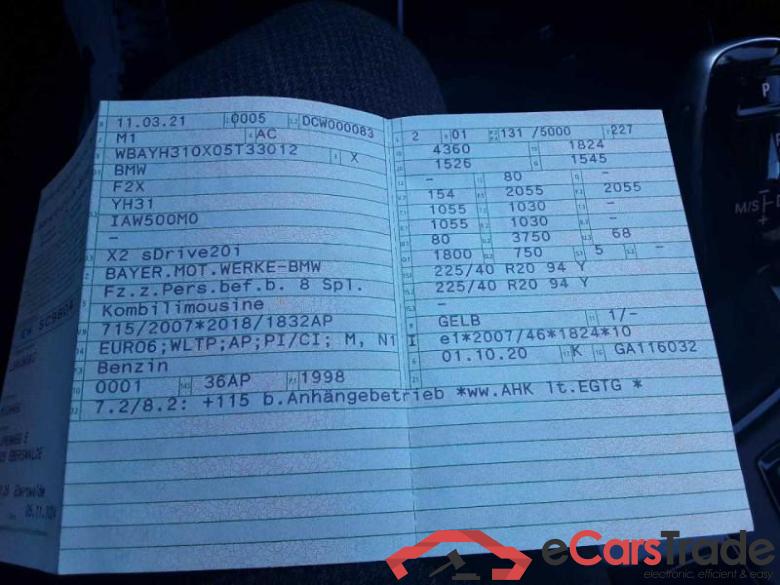 11.03.21 0005 DCW000083
M1 AC
WBAYH310X05T33012 X
BMW
F2X
YH31
IAW500M0
–
X2 sDrive20i
BAYER.MOT.WERKE-BMW
Fz.z.Pers.bef.b. 8 Spl.
Kombilimousine
715/2007*2018/1832AP
EURO6;WLTP;AP;PI/CI; M, N1 I
Benzin
0001 36AP 1998
7.2/8.2: +115 b.Anhängebetrieb *ww.AHK lt.EGTG *
2 01 131 /5000 227
4360 1824
1526 1545
– 80 –
154 2055 2055
1055 1030 –
1055 1030 –
80 3750 68
1800 750 5 –
225/40 R20 94 Y
225/40 R20 94 Y
–
GELB 1/–
e1*2007/46*1824*10
01.10.20 K GA116032
EBERSWALDE
Eberswalde
P
M/S
eCarsTrade
electronic, efficient & easy